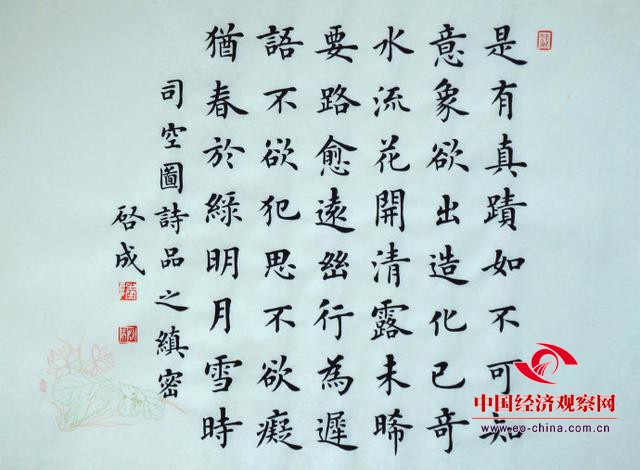 是有真蹟如不可知
意象欲出造化已奇
水流花開清露未晞
要路愈遠幽行為遲
語不欲犯思不欲癡
猶春於綠明月雪時
司空圖詩品之縝密
启成
中国经济观察网
www.eo-china.com.cn